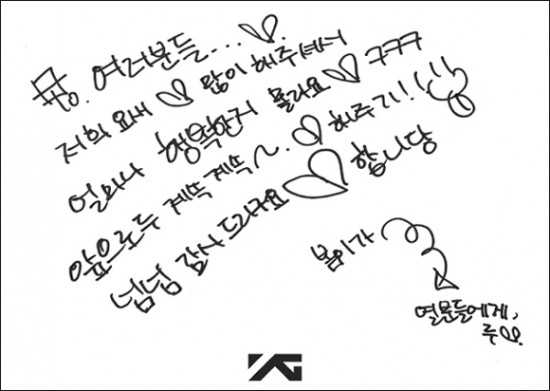 여러분들...♡.
저희 요새 ♡ 많이 해주셔서
얼마나 행벅한지 몰라요 ♡ ㅋㅋㅋ
앞으로두 계쏙계쏙~. ♡ 해주기!
넘넘 감사드려요 ♡ 합니당
봄이가
열분들에게,
YG